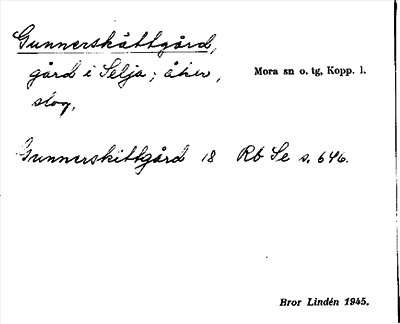 Gunnerskättgård,
gård i Selja; åker, Mora sn o. tg, Kopp. l.
slog,
Gunnerskittgård 18 Rb Se s. 646.
Bror Lindén 1945.